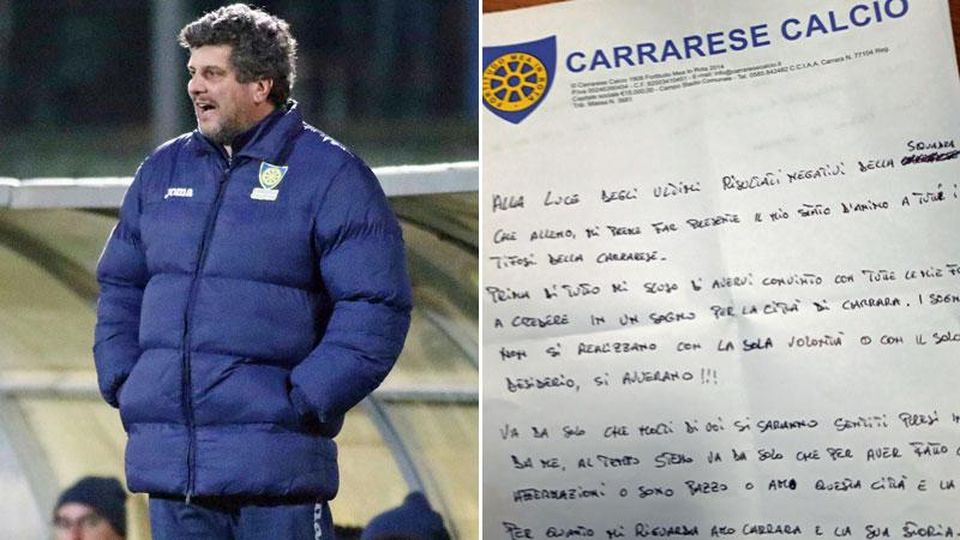 Joma
CARRARESE CALCIO
FORTITUDO MEA IN ROTA
© Carrarese Calcio 1908 Fortitudo Mea In Rota 2014
Capitale sociale €15.000,00 - Campo Stadio Comunale - Tel. 0585.842462 C.C.I.A.A. Carrara N. 77104 Reg.
Trib. Massa N. 3681
ALLA LUCE DEGLI ULTIMI RISULTATI NEGATIVI DELLA SQUADRA
CHE ALLENO, MI PREME FAR PRESENTE IL MIO STATO D'ANIMO A TUTTI I
TIFOSI DELLA CARRARESE.
PRIMA DI TUTTO MI SCUSO DI AVERVI CONVINTO CON TUTTE LE MIE
A CREDERE IN UN SOGNO PER LA CITTÀ DI CARRARA. I
NON SI REALIZZANO CON LA SOLA VOLONTÀ O CON IL SOLO
DESIDERIO, SI AVVERANO!!!
VA DA SOLO CHE MOLTI DI VOI SI SARANNO SENTITI PRESI
DA ME, AL TEMPO STESSO VA DA SOLO CHE PER AVER FATTO
AFFERMAZIONI O SONO PAZZO O AMO QUESTA CITTÀ E LA
PER QUANTO MI RIGUARDA AMO CARRARA E LA SUA STORIA.